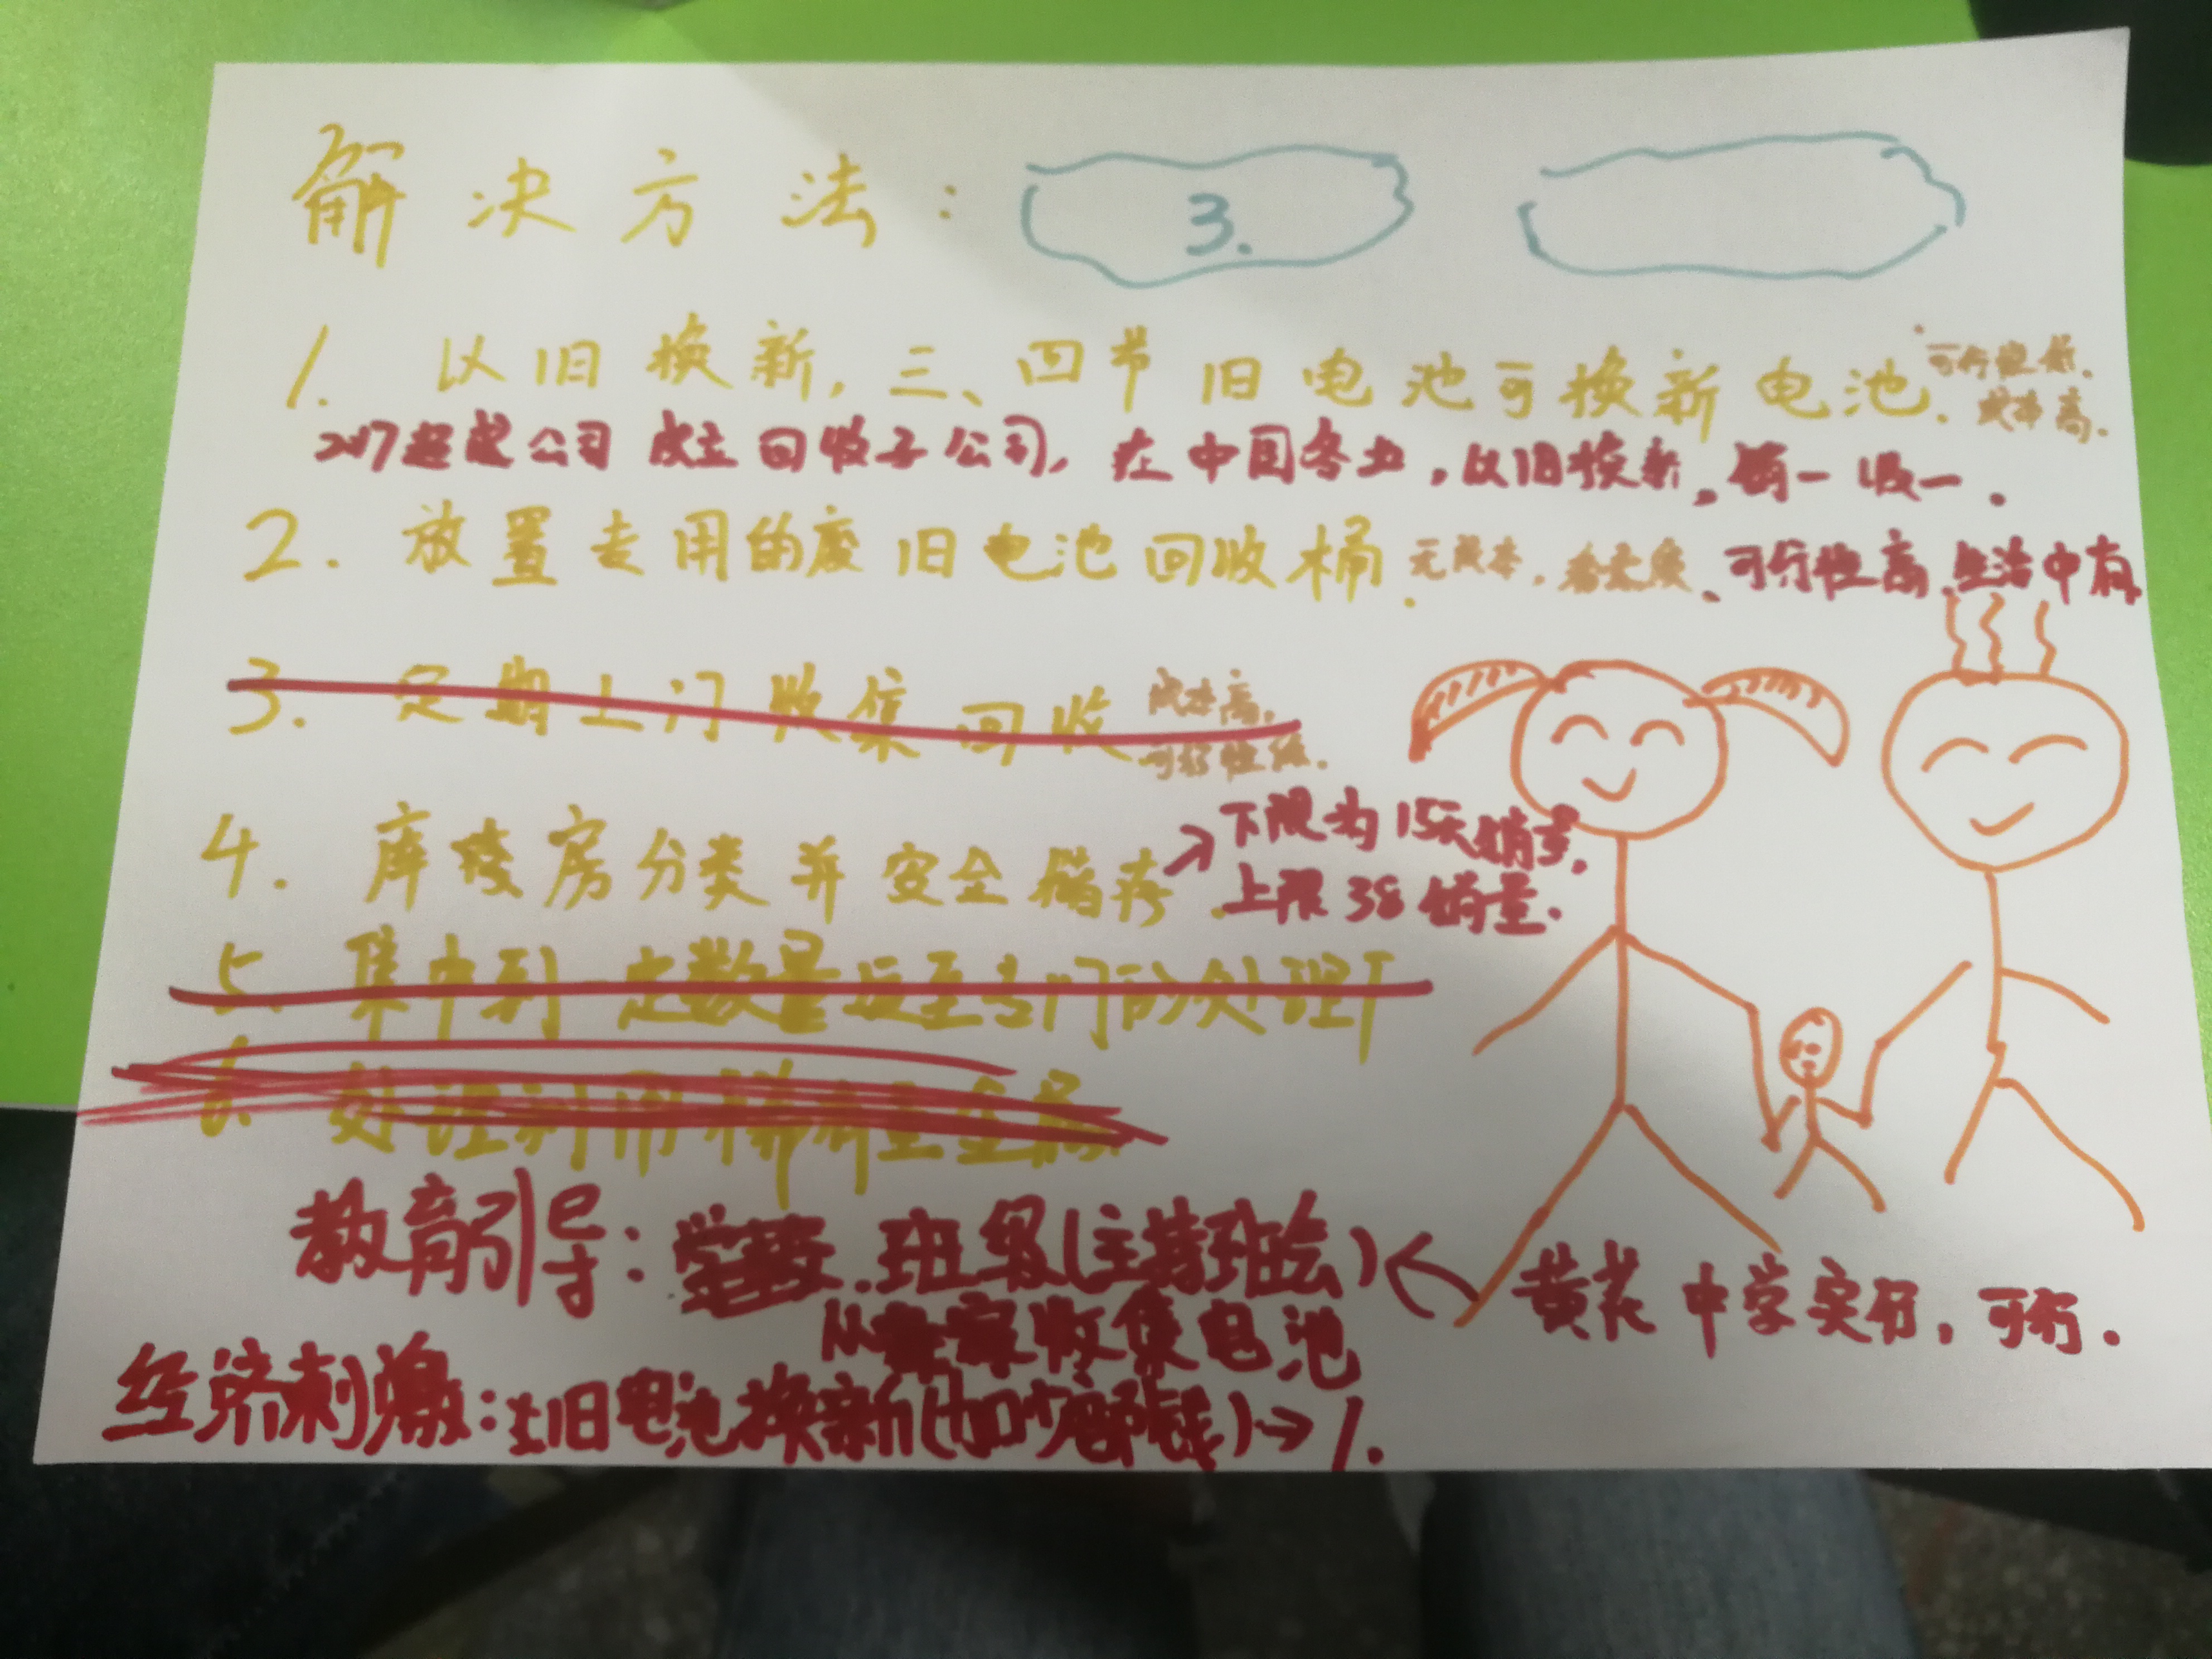 解决方法：
3.
1. 以旧换新，三、四节旧电池可换新电池.
可行性低.
成本高.
2017超威公司成立回收子公司，在中国各地，以旧换新，销一收一.
2. 放置专用的废旧电池回收桶. 无成本. 可行性高 生活中有
3. 定期上门收集回收
成本高，
可行性低.
4. 库房分类并安全储存.
下限为15天销量，
上限38销量.
5. 集中到一定数量运至专门的处理厂
6. 处理利用稀有重金属
教育引导： 班级(主持班会)
从 家收集电池
黄花中学实行，可行.
经济刺激：以旧电池换新(加少部钱)→1.